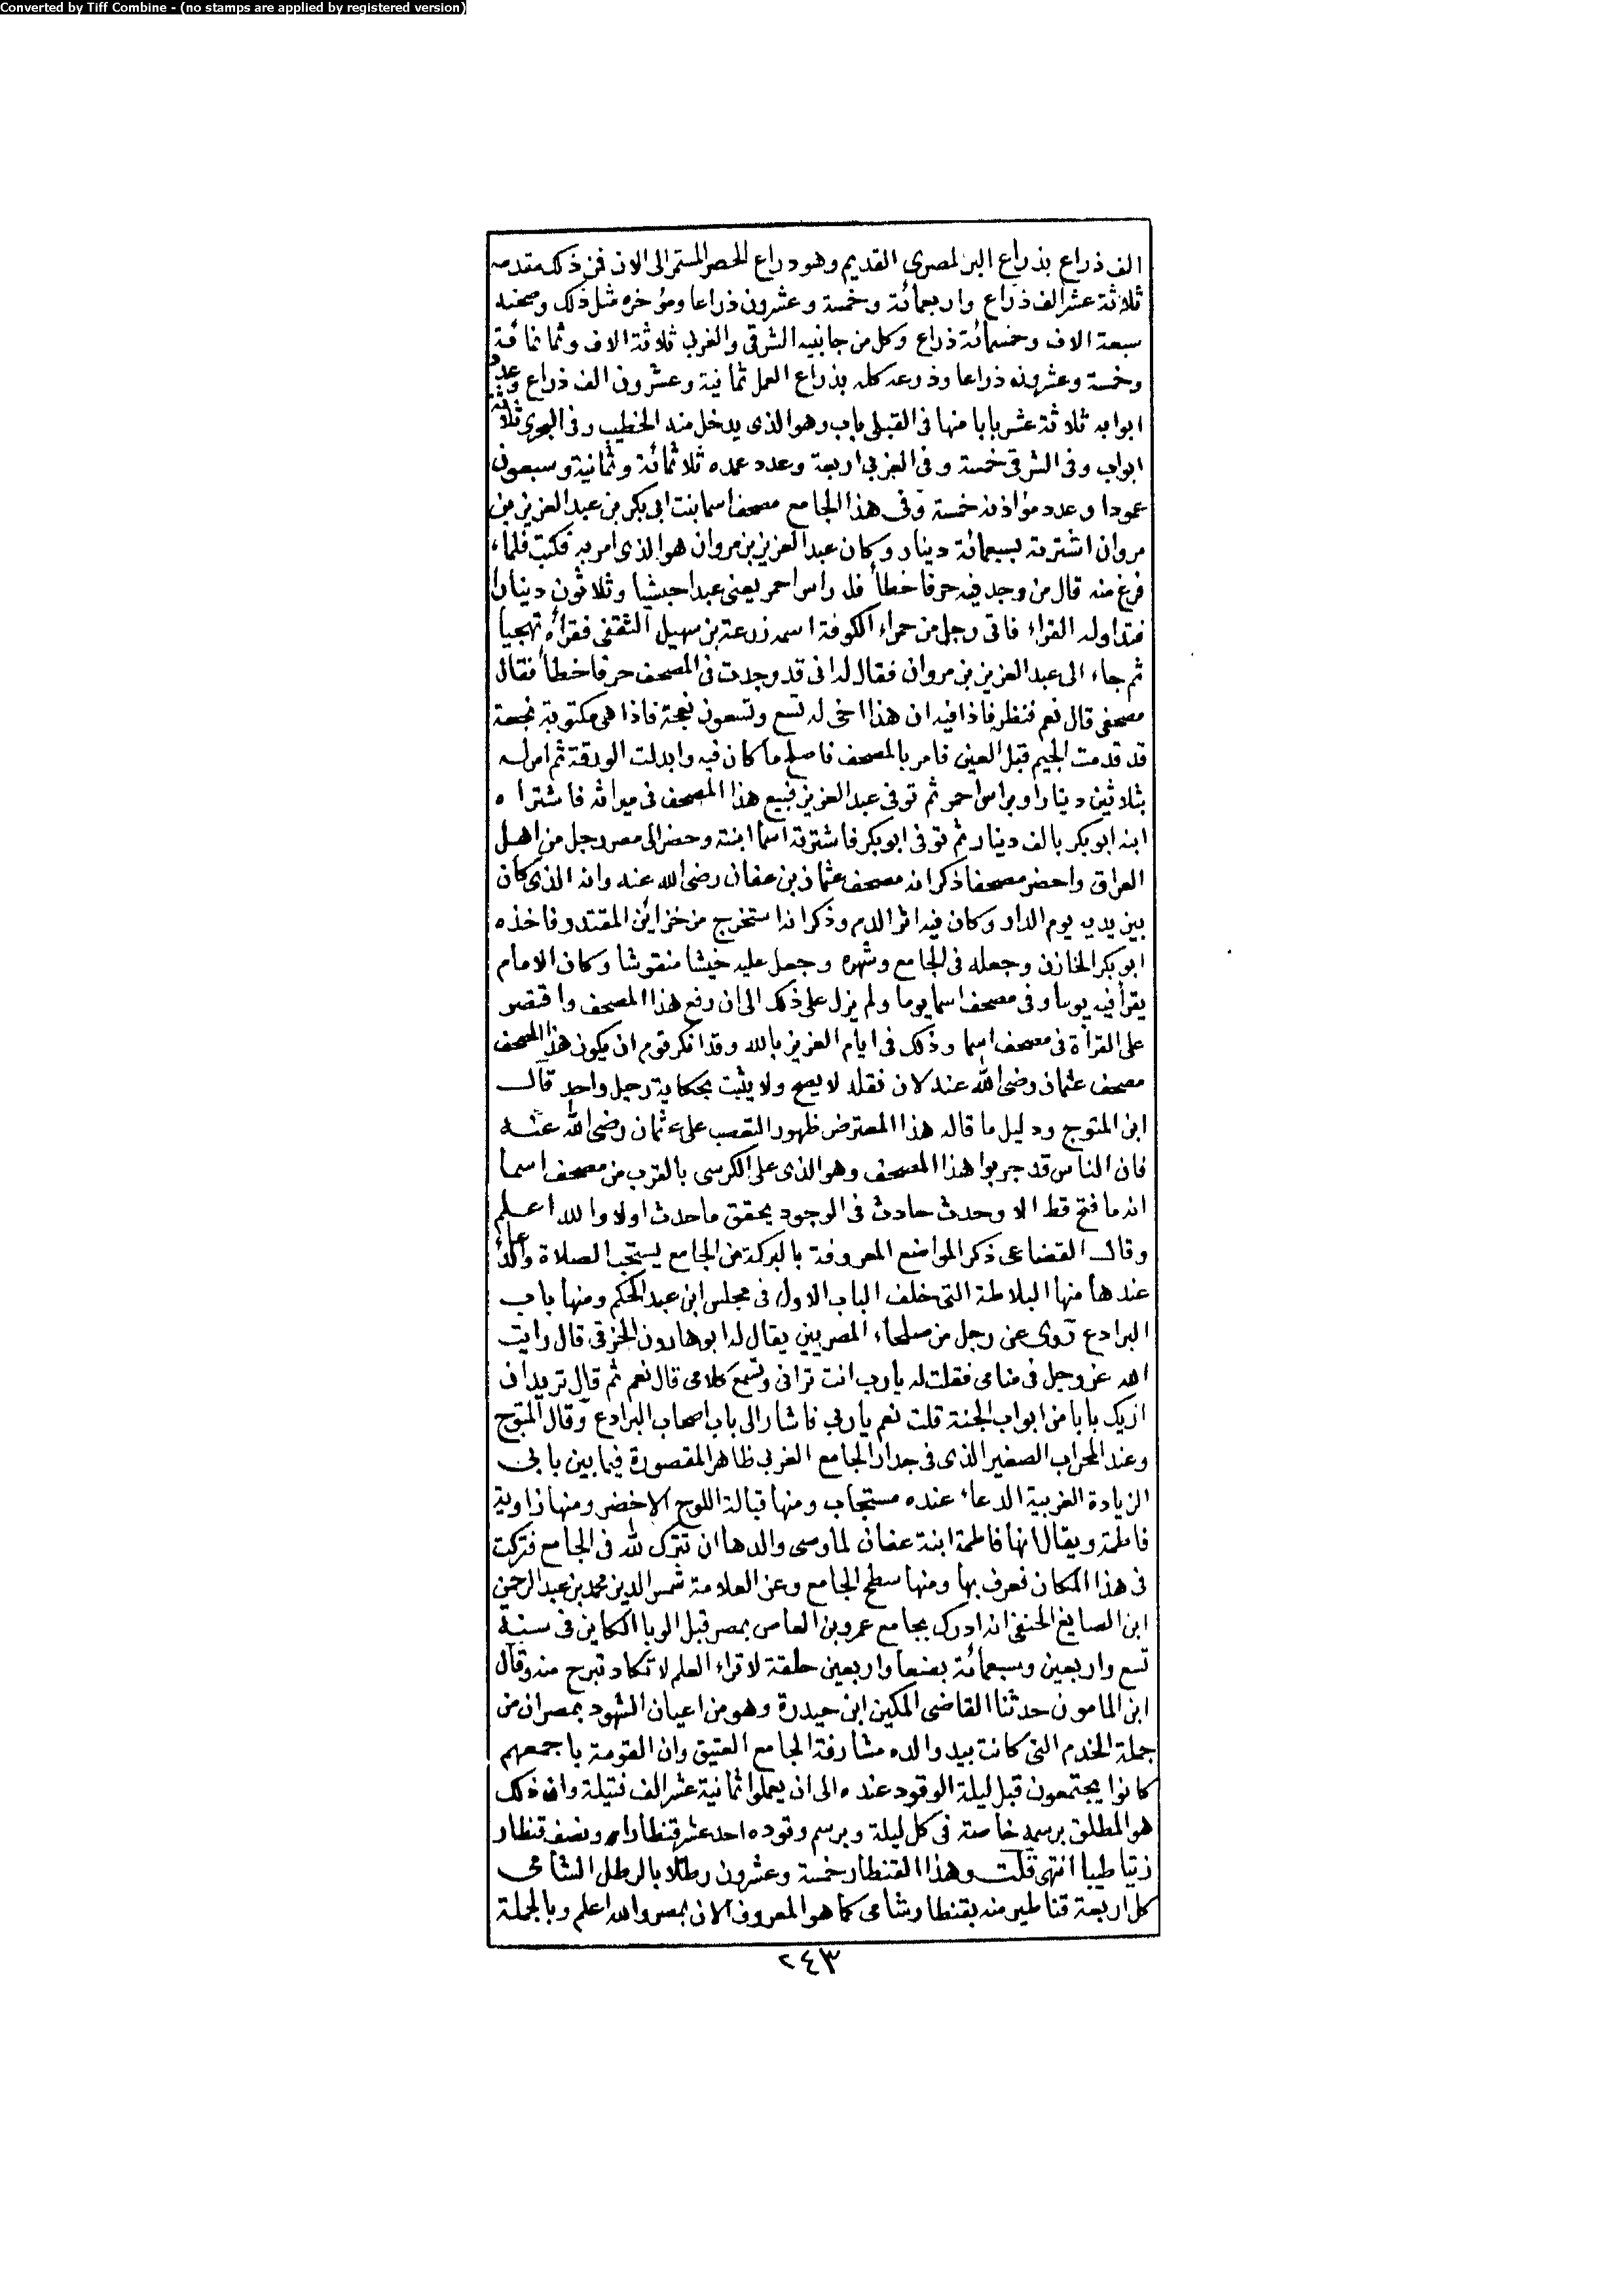 Converted by Tiff Combine - (no stamps are applied by registered version)
الف ذراع بذراع البر المصرى القديم وهو دراع الحصر المستمر الى الان فمن ذلك مقدمه
ثلاثة عشر الف ذراع واربعمائة وخمسة وعشرون ذراعا ومؤخره مثل ذلك وصحنه
سبعة الاف وخمسمائة ذراع وكل من جانبيه الشرقى والغربى ثلاثة الاف وثمانمائة
وخمسة وعشرون ذراعا وذرعه كله بذراع العمل ثمانية وعشرون الف ذراع وعدد
ابوابه ثلاثة عشر بابا منها فى القبلى باب وهو الذى يدخل منه الخطيب وفى البحرى ثلاثة
ابواب وفى الشرقى خمسة وفى الغربى اربعة وعدد عمده ثلاثمائة وثمانية وسبعون
عمودا وعدد مواذنه خمسة وفى هذا الجامع مصحف اسما بنت ابى بكر بن عبد العزيز بن
مروان اشترته بسبعمائة دينار وكان عبد العزيز بن مروان هو الذى امر به فكتب فلما
فرغ منه قال من وجد فيه حرفا خطأ فله راس احمر يعنى عبدا حبشيا وثلاثون دينارا
فتداوله القراء فاتى رجل من حمراء الكوفة اسمه زرعة بن سهيل الثقفى فقرأه تهجيا
ثم جاء الى عبد العزيز بن مروان فقال له انى قد وجدت فى المصحف حرفا خطأ فقال
مصحفى قال نعم فنظر فاذا فيه ان هذا اخى له تسع وتسعون نعجة فاذا هى مكتوبة نجعة
قد قدمت الجيم قبل العين فامر بالمصحف فاصلح ما كان فيه وابدلت الورقة ثم امر له
بثلاثين دينارا وبراس احمر ثم توفى عبد العزيز فبيع هذا المصحف فى ميراثه فاشتراه
ابنه ابو بكر بالف دينار ثم توفى ابو بكر فاشترته اسما ابنته وحضر الى مصر رجل من اهل
العراق واحضر مصحفا ذكر انه مصحف عثمان بن عفان رضى الله عنه وانه الذى كان
بين يديه يوم الدار وكان فيه اثر الدم وذكر انه استخرج من خزائن المقتدر فاخذه
ابو بكر الخازن وجعله فى الجامع وشهره وجعل عليه خيشا منقوشا وكان الامام
يقرأ فيه يوما وفى مصحف اسما يوما ولم يزل على ذلك الى ان رفع هذا المصحف واقتصر
على القرأة فى مصحف اسما وذلك فى ايام العزيز بالله وقد انكر قوم ان يكون هذا المصحف
مصحف عثمان رضى الله عنه لان نقله لا يصح ولا يثبت بحكاية رجل واحد قال
ابن المتوج ودليل ما قاله هذا المعترض ظهور التعصب على عثمان رضى الله عنه
فان الناس قد جربوا هذا المصحف وهو الذى على الكرسى بالقرب من مصحف اسما
انه ما فتح قط الا وحدث حادث فى الوجود يحقق ما حدث اولا والله اعلم
وقال القضاعى ذكر المواضع المعروفة بالبركة من الجامع يستحب الصلاة والدعاء
عندها منها البلاطة التى خلف الباب الاول فى مجلس ابن عبد الحكم ومنها باب
البرادع روى عن رجل من صلحاء المصريين يقال له ابو هارون الخرقى قال رايت
الله عز وجل فى منامى فقلت له يارب انت ترانى وتسمع كلامى قال نعم ثم قال تريد ان
اريك بابا من ابواب الجنة قلت نعم يا ربى فاشار الى باب اصحاب البرادع وقال المتوج
وعند المحراب الصغير الذى فى جدار الجامع الغربى ظاهر المقصورة فيما بين بابى
الزيادة الغربية الدعاء عنده مستجاب ومنها قبالة اللوح الاخضر ومنها زاوية
فاطمة ويقال انها فاطمة ابنة عفان لما وصى والدها ان تترك لله فى الجامع فتركت
فى هذا المكان فعرف بها ومنها سطح الجامع وعن العلامة شمس الدين محمد بن عبد الرحمن
ابن الصايغ الحنفى انه ادرك بجامع عمرو بن العاص بمصر قبل الوبا الكاين فى سنة
تسع واربعين وسبعمائة بضعا واربعين حلقة لاقراء العلم لا تكاد تبرح منه وقال
ابن المامون حدثنا القاضى المكين ابن حيدرة وهو من اعيان الشهود بمصر ان من
جملة الخدم التى كانت بيد والده مشارفة الجامع العتيق وان القومة باجمعهم
كانوا يجتمعون قبل ليلة الوقود عنده الى ان يعملوا ثمانية عشر الف فتيلة وان ذلك
هو المطلق برسمه خاصة فى كل ليلة وبرسم وقوده احد عشر قنطارا ونصف قنطار
زيتا طيبا انتهى قلت وهذا القنطار خمسة وعشرون رطلا بالرطل الشامى
كل اربعة قناطير منه بقنطار شامى كما هو المعروف الان بمصر والله اعلم وبالجملة
٢٤٣